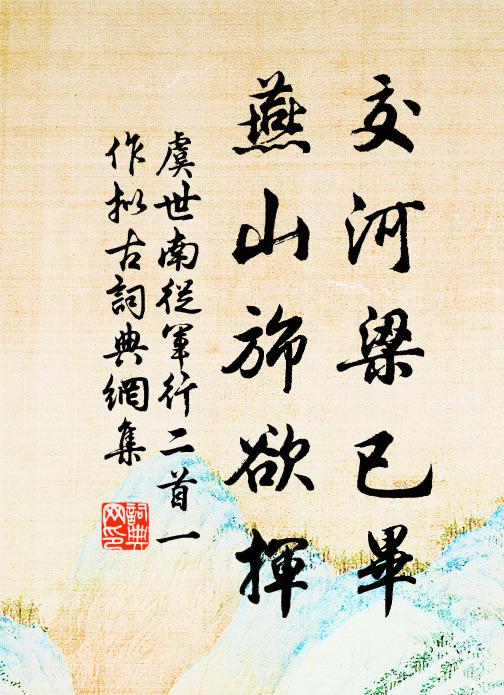 交河梁已畢
燕山旆欲揮
虞世南從軍行二首一
作拟古詞典網集
詞典網印